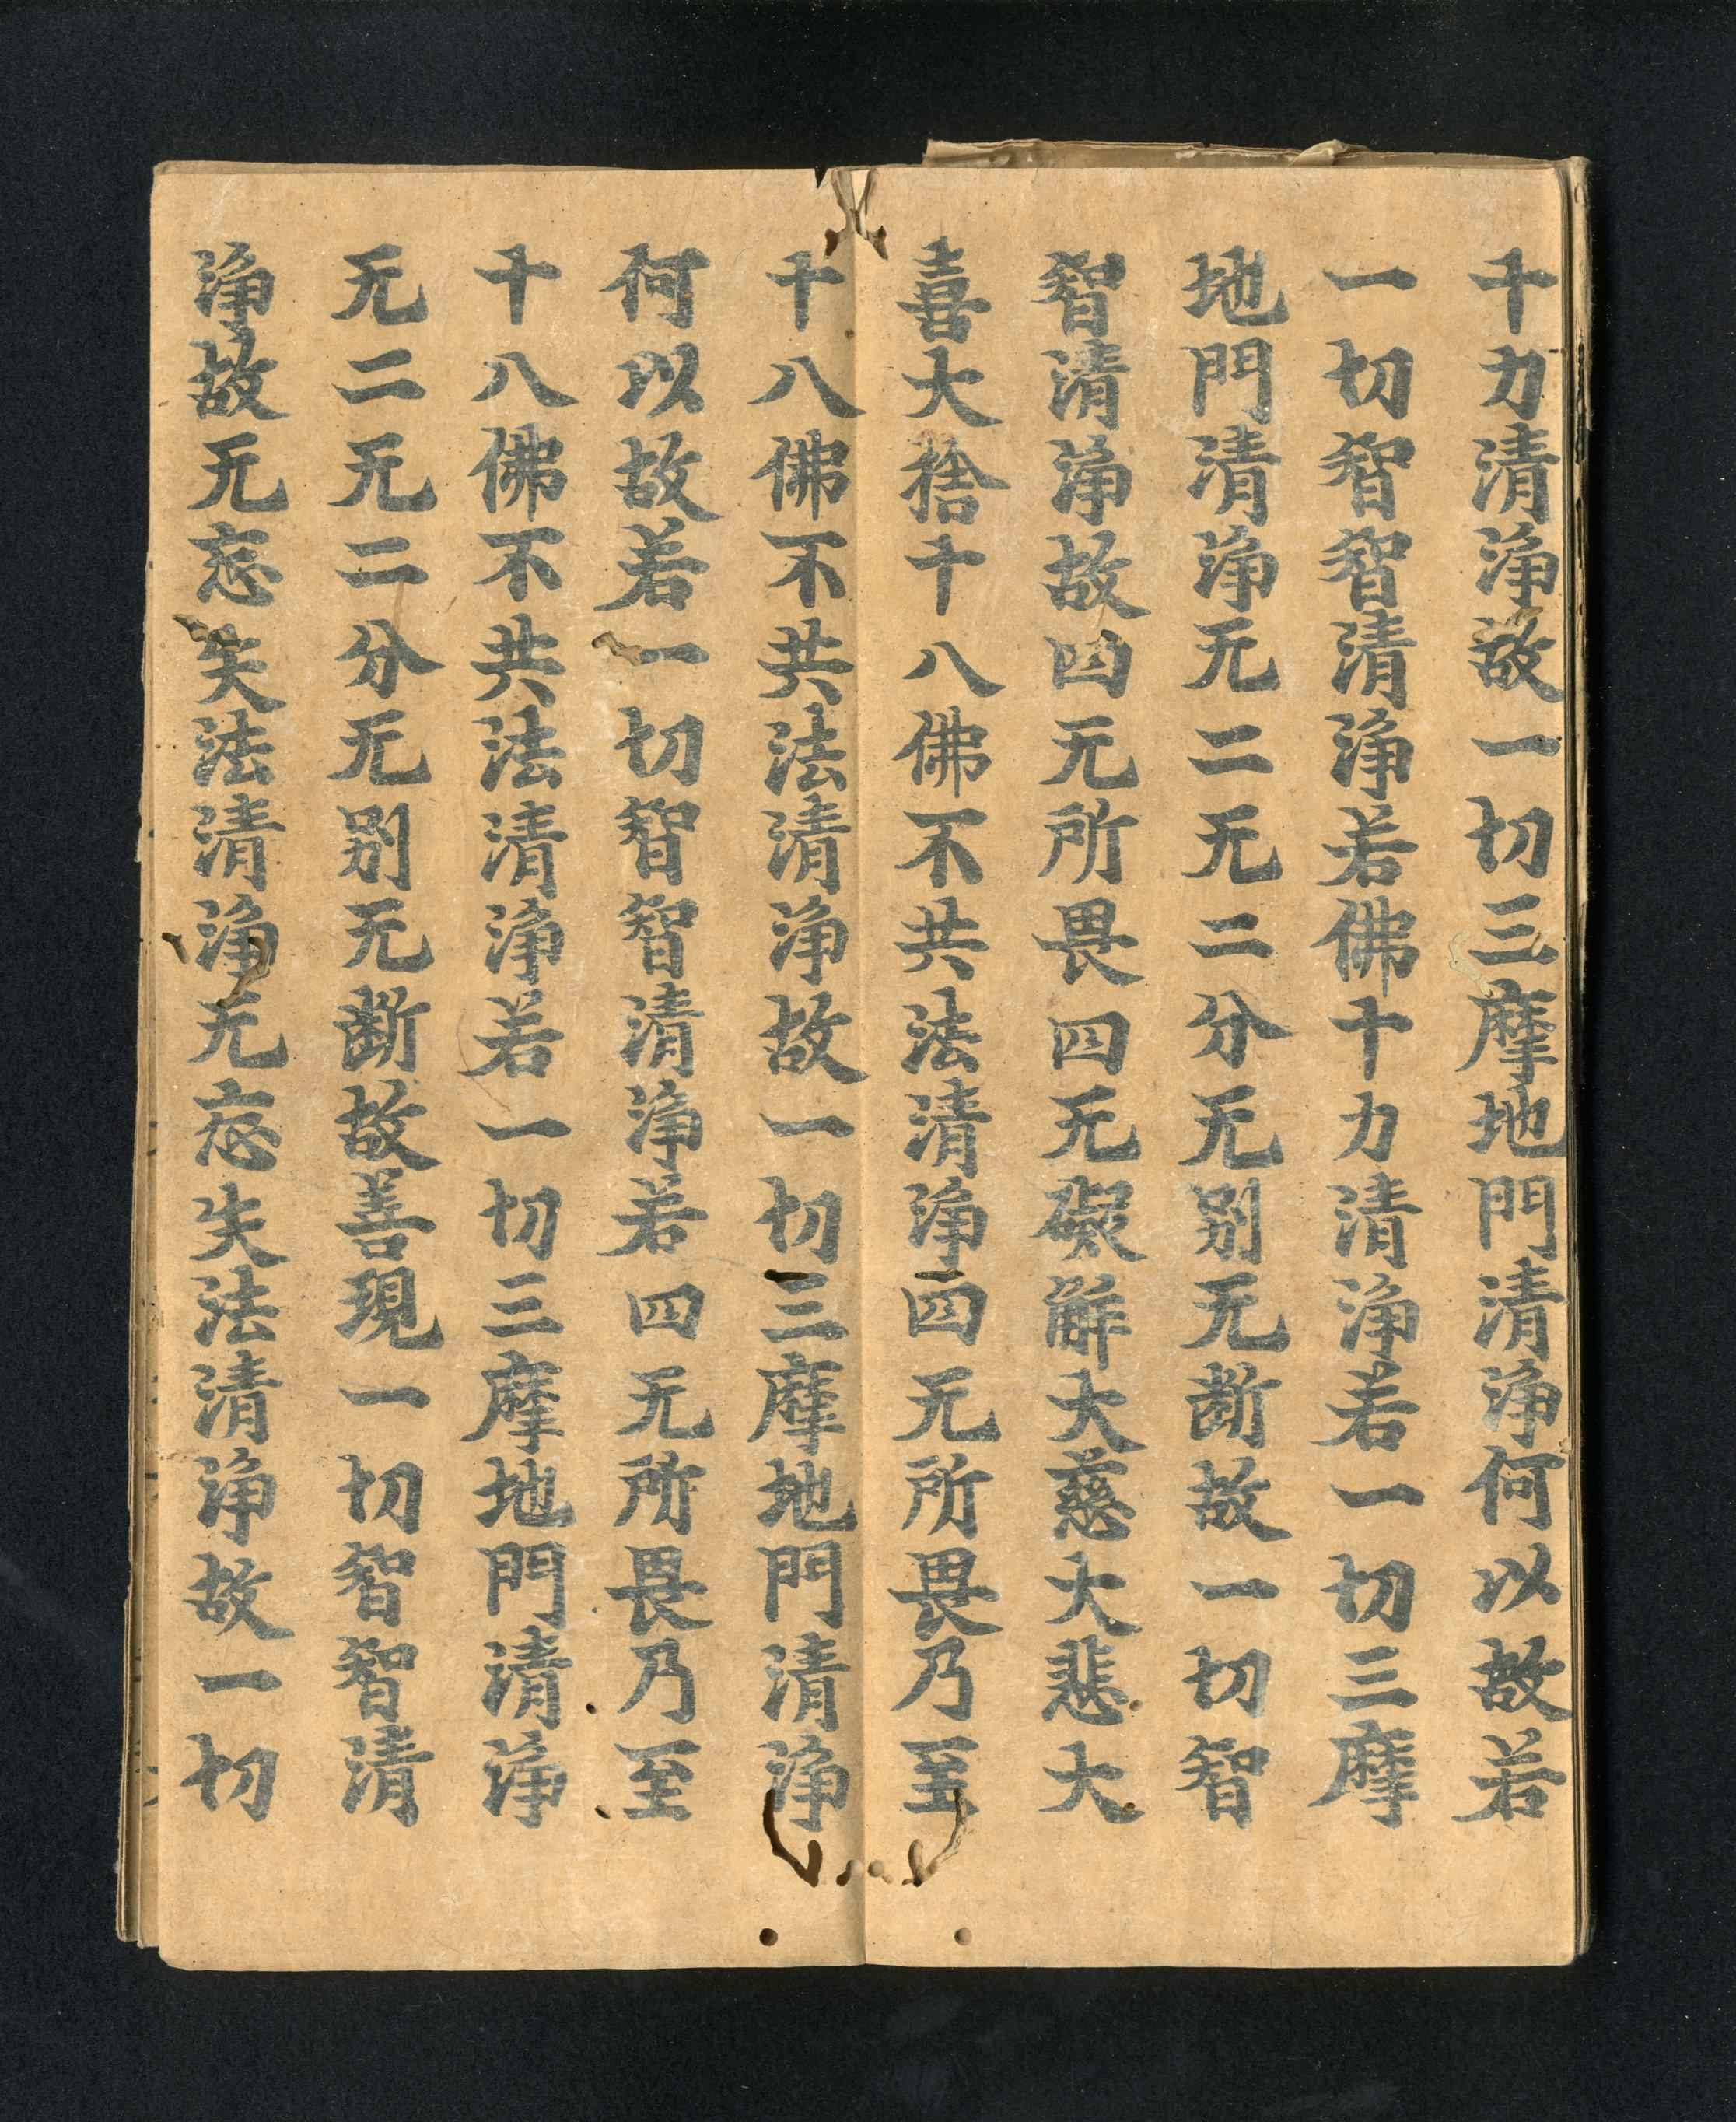 十力清淨故一切三摩地門清淨何以故若
一切智智清淨若佛十力清淨若一切三摩
地門清淨无二无二分无别无断故一切智
智清淨故四无所畏四无礙解大慈大悲大
喜大捨十八佛不共法清淨四无所畏乃至
十八佛不共法清淨故一切三摩地門清淨
何以故若一切智智清淨若四无所畏乃至
十八佛不共法清淨若一切三摩地門清淨
无二无二分无别无断故善現一切智智清
淨故无忘失法清淨无忘失法清淨故一切